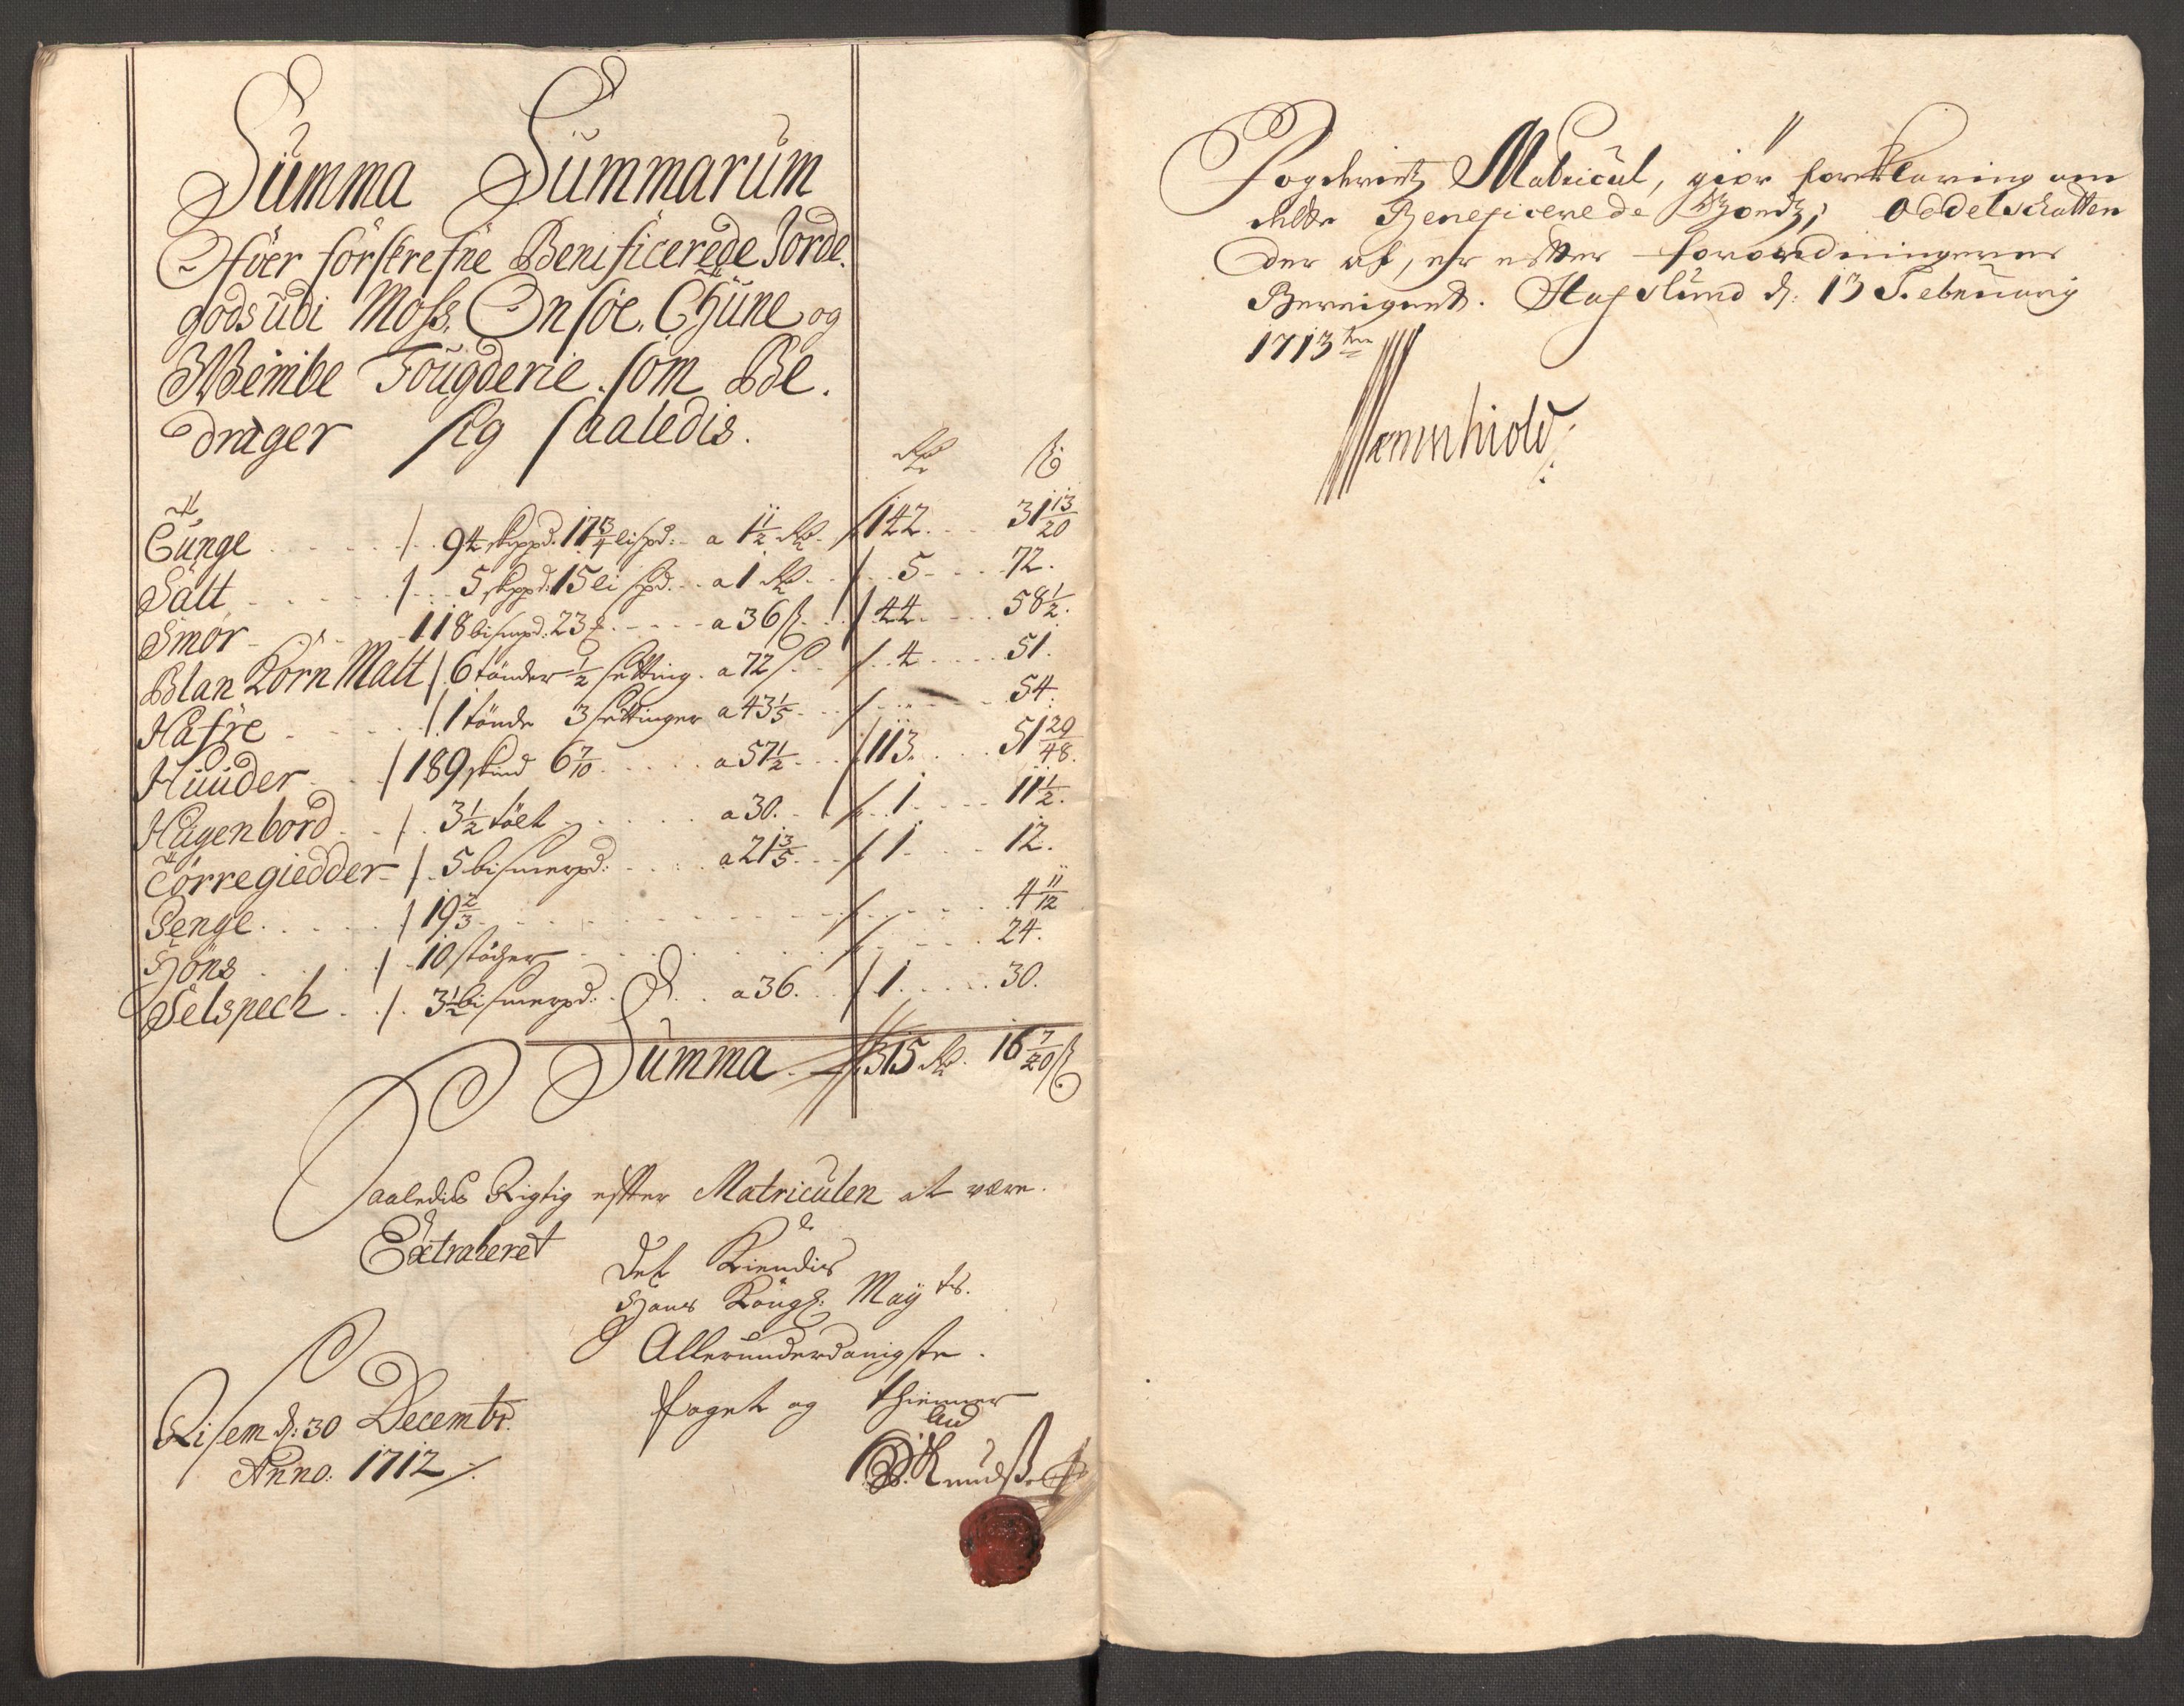 Summa Summarum
Ofver forskrefne Benificerede Jorde
gods udi Moss, Onsøe, Thune og
Weimbe Fougderie som Be-
drager sig saaledis.
Rdr ß
Tunge 94 skippd: 17 3/4 lispd: a 1 1/2 Rdr 142 31 13/20
Salt 5 skippd: 15 lispd. a 1 Rdr 5 72.
Smør 118 bismpd: 23 a 36 ß 44 58 1/2.
Blan Korn Malt 6 tønder 1/2 setting. a 72 ß 4 51.
Hafre 1 tønde 3 settinger a 43 1/5 54.
Huuder 189 skind 6 7/10 a 57 1/2 113. 51 29/48.
Hugenbord 3 1/2 tolt a 30. 1 11 1/2.
Tørregiedder 5 bismerpd: a 21 3/5 1 12.
Penge 19 2/3 4 11/12
Høns 10 støcher 24.
Selspech 3 1/2 bismerpd: a 36. 1 30.
Summa 315 Rdr 16 7/40 ß
Saaledis Rigtig efter Matriculen at være.
Extraheret
Det Kiendis
Hans Kongl: Mayts.
Allerunderdanigste
foget og thienner
Risem d: 30 Decembr.
Anno: 1712
Knudsen
Fogderiets Matricul, giør forklaring om
dette Beneficerede Gods; Oddelschatten
der af, er effter forordningerne
Bereignet. Hafslund d: 13 Februarij
1713